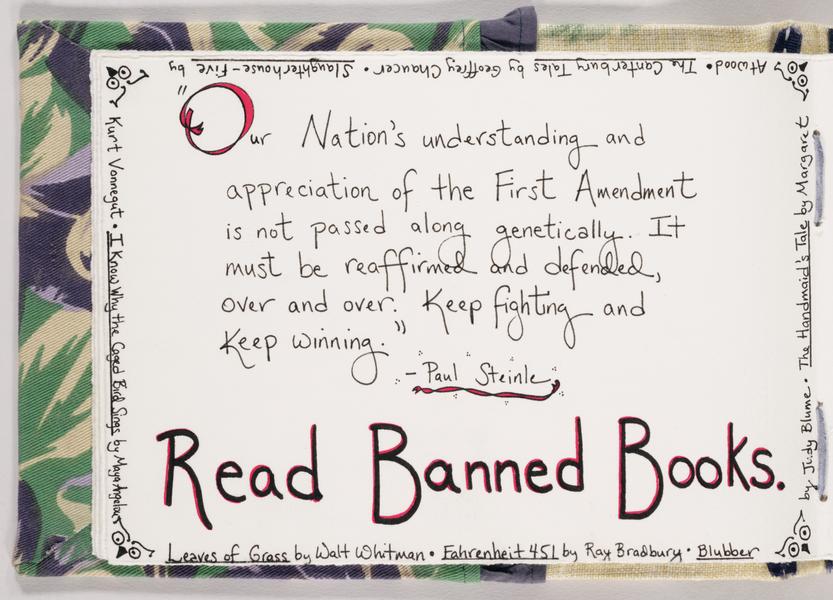 "Our Nation's understanding and
appreciation of the First Amendment
is not passed along genetically. It
must be reaffirmed and defended,
over and over. Keep fighting and
Keep winning."
- Paul Steinle
Read Banned Books.
Leaves of Grass by Walt Whitman • Fahrenheit 451 by Ray Bradbury • Blubber
by Judy Blume • The Handmaid's Tale by Margaret
Atwood • The Canterbury Tales by Geoffrey Chaucer • Slaughterhouse-Five by
Kurt Vonnegut • I Know Why the Caged Bird Sings by Maya Angelou